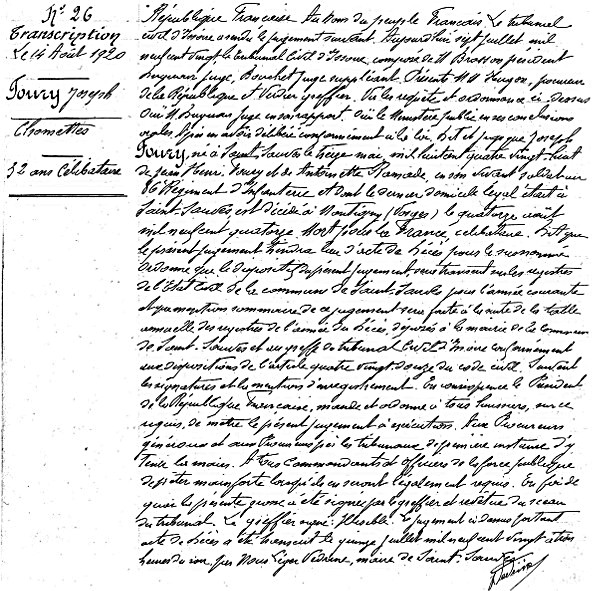 N° 26
Transcription
Le 14 Août 1920
Foury Joseph
Chomettes
32 ans Célibataire
République Française Au nom du peuple Français Le tribunal
civil d'Issoire a rendu le jugement suivant. Aujourd'hui sept juillet mil
neuf cent vingt le tribunal civil d'Issoire, composé de M Brosson président
Juge, Bouchet juge suppléant. Présents M M procureur
de la République et Verdier greffier. Vu les requête et ordonnance ci-dessus
Ouï M juge en son rapport. Ouï le Ministère public en ses conclusions
verbales. Après en avoir délibéré conformément à la loi, Dit et juge que Joseph
Foury, né à Saint-Sauves le treize mai mil huit cent quatre vingt huit
de Jean Henri Foury et de Antoinette Ramade, en son vivant soldat au
86 Régiment d'Infanterie et dont le dernier domicile légal était à
Saint-Sauves, est décédé à Montigny (Vosges) le quatorze août
mil neuf cent quatorze Mort pour la France, célibataire. Dit que
le présent jugement tiendra lieu d'acte de décès pour le susnommé
ordonne que le dispositif du présent jugement sera transcrit sur les registres
de l'Etat Civil de la commune de Saint-Sauves pour l'année courante
et que mention sommaire de ce jugement sera faite à la suite de la table
annuelle des registres de l'année du décès, déposés à la mairie de la commune
de Saint-Sauves et au greffe du tribunal Civil d'Issoire conformément
aux dispositions de l'article quatre vingt douze du code civil. Suivent
les signatures et les mentions d'enregistrement. En conséquence le Président
de la République Française, mande et ordonne à tous huissiers, sur ce
requis, de mettre le présent jugement à exécution. Aux Procureurs
généraux et aux Procureurs près les tribunaux de première instance d'y
tenir la main. A tous commandants et officiers de la force publique
de prêter main forte lorsqu'ils en seront légalement requis. En foi de
quoi la présente grosse a été signée par le greffier et revêtue du sceau
du tribunal. Le greffier signé: illisible. Le jugement ci-dessus portant
acte de décès a été transcrit le quinze juillet mil neuf cent vingt à trois
heures du soir, par Nous Léger maire de Saint-Sauves